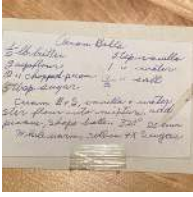 Pecan Balls
½ lb butter 2 tsp vanilla
2 cups flour 1 " water
2 " chopped pecan ½ " salt
5 tbsp. sugar
Cream B & S, vanilla & water
flour into mixture, add
pecans, shape balls. 325° 20 min
While warm roll in X sugar